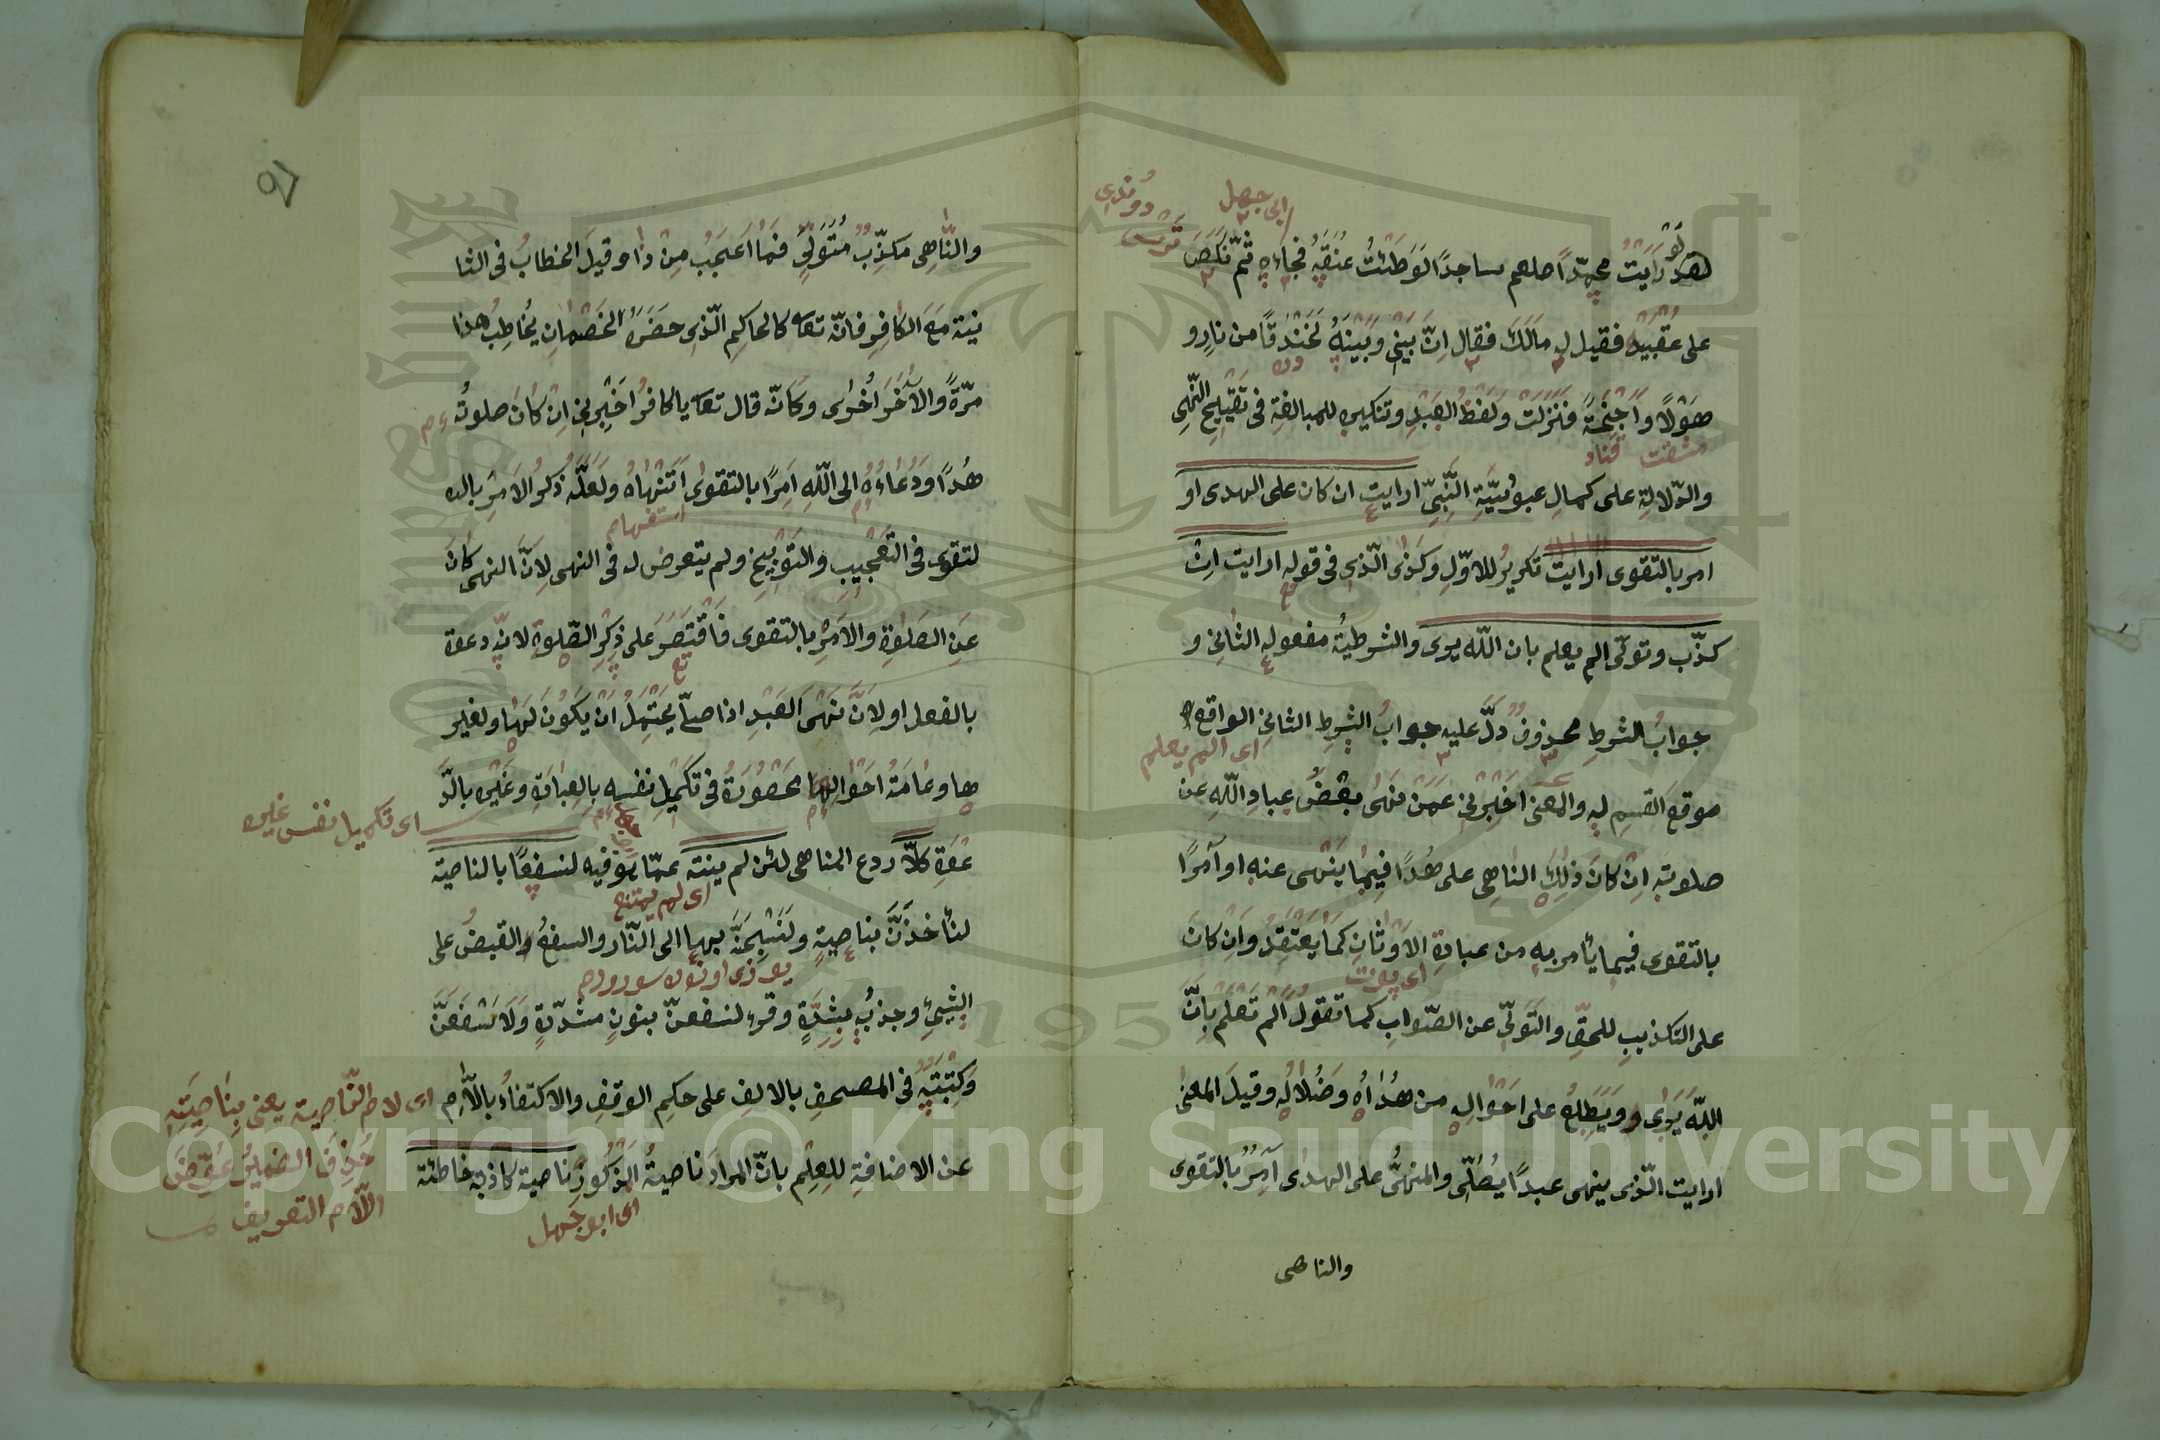 لو رايت محمّداً صلعم ساجدًا لوطئت عنقه فجاءه ثمّ نكص
على عقبيه فقيل له مالك فقال اِنّ بيني وبينه لخندقًا من نارٍ و
هولًا واجنحةً فنزلت ولفظ العبد وتنكيره للمبالغة فى تقبيح النّهى
والدّلالة على كمال عبوديّة النّبيّ ارايت ان كان على الهدى او
امر بالتقوى ارايت تكريرٌ للاوّل وكذى الّذى فى قوله ارايت اِن
كذّب وتولّى الم يعلم بان اللّه يرى والشرطيّة مفعوله الثانى و
جواب الشرط محذوفٌ دلّ عليه جواب الشرط الثانى الواقع
موقع القسم له والمعنى اخبرنى عمّن نهى بعض عباد اللّه عن
صلوته اِن كان ذلك الناهى على هُدًا فيما ينهى عنه او آمرًا
بالتقوى فيما يأمر به من عبادة الاوثان كما يعتقد واِن كان
على التكذيب للحقّ والتّولّى عن الصّواب كما تقول الم تعلم باَنّ
اللّه يرى ويطّلع على احواله من هُداه وضلاله وقيل المعنى
ارايت الّذى ينهى عبدًا يصلّى والمنهىّ على الهدى آمرٌ بالتقوى
والناهى
ابى جهل
دوندى
اى الم يعلم
والنّاهى مكذّبٌ متولّىٌ فما اَعجب مِن ذا وقيل الخطاب فى الثا
نية مع الكافر فانّه تعا كالحاكم الّذى حضره الخصمان يُخاطب هذا
مرّةً والآخر اُخرى وكانّه قال تعا يا كافر اخبرنى اِن كان صلوته
هُدًا ودُعاءه الى اللّه اَمرًا بالتقوى اَتنهاه ولعلّه ذكر الامر بالت
لتقوى فى التعجيب والتّوبيخ ولم يتعرض له فى النهى لاَنّ النهى كان
عن الصلوة والامر بالتقوى فاقتصر على ذكر الصّلوة لانّه دعوة
بالفعل او لِاَنّ نهى العبد اذا صلّى يحتمل اَن يكون لها ولغير
ها وعامة احوالها محصورة فى تكميل نفسه بالعبادة وغيره بالدّ
عوة كلاّ ردع الناهى لئن لم ينته عمّا هو فيه لنسفعًا بالناصية
لنأخذنّ بناصيةٍ ولنسحبنّه بها الى النّار والسفع القبض على
الشئ وجذبه بشدّةٍ وقرء لنسفعنّ بنونٍ مشدّدةٍ ولاسفعنّ
وكتبته فى المصحف بالالف على حكم الوقف والاكتفاء باللّام
عن الاضافة للعلم بانّ المراد ناصية المذكور ناصية كاذبة خاطئة
استفهام
اى تكميل نفس غيره
اى لم يمتنع
اى لام النّاصية يعنى بناصيته
حذف الضمير عوّض
اللّام التعريف
اى ابو جهل
Copyright © King Saud University
1957